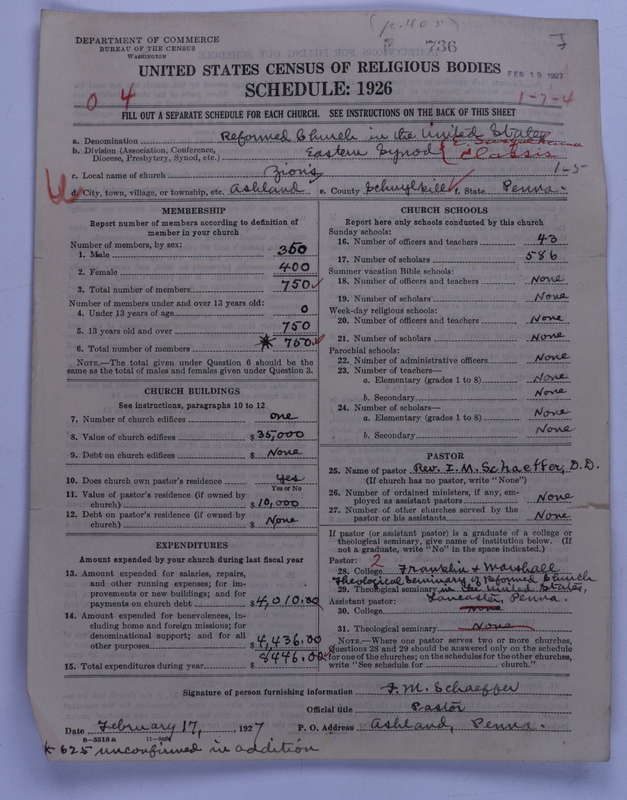 (p. 405)
DEPARTMENT OF COMMERCE
BUREAU OF THE CENSUS
WASHINGTON
736
UNITED STATES CENSUS OF RELIGIOUS BODIES
FEB 19 1927
SCHEDULE: 1926
0 4
1-7-4
FILL OUT A SEPARATE SCHEDULE FOR EACH CHURCH. SEE INSTRUCTIONS ON THE BACK OF THIS SHEET
a. Denomination Reformed Church in the United States
b. Division (Association, Conference, Diocese, Presbytery, Synod, etc.) Eastern Synod { E. Susquehanna Classis
c. Local name of church Zion's
1-5
d. City, town, village, or township, etc. Ashland e. County Schuylkill f. State Penna.
MEMBERSHIP
Report number of members according to definition of
member in your church
Number of members, by sex:
1. Male 350
2. Female 400
3. Total number of members 750
Number of members under and over 13 years old:
4. Under 13 years of age 0
5. 13 years old and over 750
6. Total number of members * 750
NOTE.—The total given under Question 6 should be the
same as the total of males and females given under Question 3.
CHURCH BUILDINGS
See instructions, paragraphs 10 to 12
7. Number of church edifices one
8. Value of church edifices $ 35,000
9. Debt on church edifices $ None
10. Does church own pastor's residence yes
Yes or No
11. Value of pastor's residence (if owned by
church) $ 10,000
12. Debt on pastor's residence (if owned by
church) $ None
EXPENDITURES
Amount expended by your church during last fiscal year
13. Amount expended for salaries, repairs,
and other running expenses; for im-
provements or new buildings; and for
payments on church debt $ 4,010.00
14. Amount expended for benevolences, in-
cluding home and foreign missions; for
denominational support; and for all
other purposes $ 4,436.00
15. Total expenditures during year $ 8446.00
CHURCH SCHOOLS
Report here only schools conducted by this church
Sunday schools:
16. Number of officers and teachers 43
17. Number of scholars 586
Summer vacation Bible schools:
18. Number of officers and teachers None
19. Number of scholars None
Week-day religious schools:
20. Number of officers and teachers None
21. Number of scholars None
Parochial schools:
22. Number of administrative officers None
23. Number of teachers—
a. Elementary (grades 1 to 8) None
b. Secondary None
24. Number of scholars—
a. Elementary (grades 1 to 8) None
b. Secondary None
PASTOR
25. Name of pastor Rev. I. M. Schaeffer, D.D.
(If church has no pastor, write "None")
26. Number of ordained ministers, if any, em-
ployed as assistant pastors None
27. Number of other churches served by the
pastor or his assistants None
If pastor (or assistant pastor) is a graduate of a college or
theological seminary, give name of institution below. (If
not a graduate, write "No" in the space indicated.)
Pastor: 2
28. College Franklin & Marshall
Theological Seminary of Reformed Church
29. Theological seminary in the United States,
Assistant pastor: Lancaster, Penna.
30. College None
31. Theological seminary None
NOTE.—Where one pastor serves two or more churches,
Questions 28 and 29 should be answered only on the schedule
for one of the churches; on the schedules for the other churches,
write "See schedule for church."
Signature of person furnishing information I. M. Schaeffer
Official title Pastor
Date February 17, 1927 P. O. Address Ashland, Penna.
8—5518 a
* 625 unconfirmed in addition